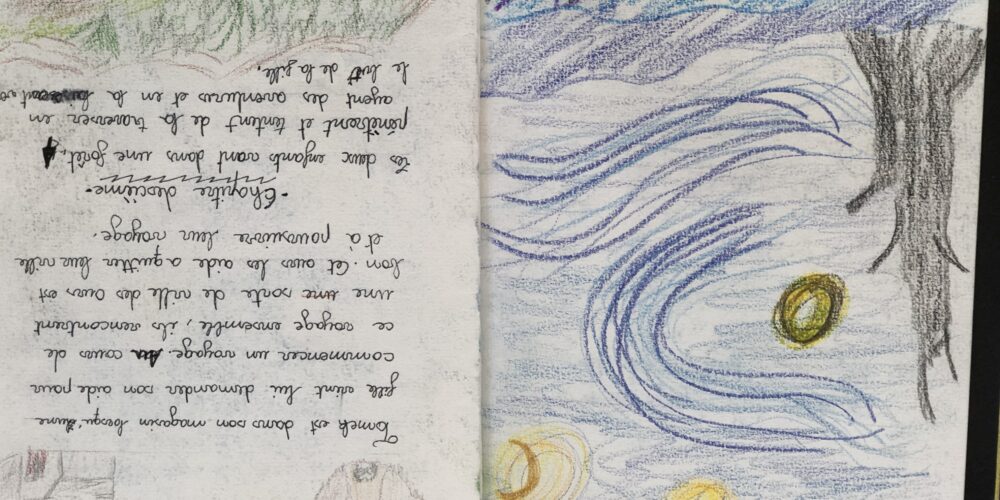 Tomek est dans son magasin lorsqu'une
fille vient lui demander son aide pour
commencer un voyage. Au cours de
ce voyage ensemble, ils rencontrent
une une sorte de ville des ours est
bon. Cet ours les aide a quitter leur ville
et à poursuivre leur voyage.
-Chapitre dexième-
Les deux enfants vont dans une forêt,
pénètrent et tentent de la traverser en
ayent des aventures et en la
le but de la fille.